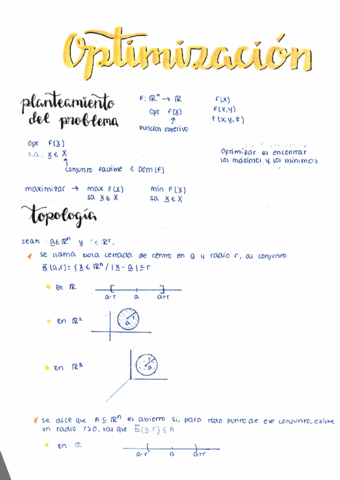 Optimización
planteamiento del problema
F: ℝⁿ → ℝ
Opt F(x)
función objetivo
F(x)
F(x,y)
F(x,y,z)
Opt F(x)
s.a. x ∈ X
conjunto factible ∈ Dom(F)
Optimizar es encontrar
los máximos y los mínimos
maximizar → max F(x) min F(x)
sa x ∈ X sa x ∈ X
topología
sean a∈ℝⁿ y r∈ℝ
se llama bola cerrada de centro en a y radio r, al conjunto
B̄(a,r) = {x ∈ ℝⁿ / |x - a| ≤ r
en ℝ
a-r a a+r
en ℝ²
r
a
en ℝ³
r
a
se dice que A ⊆ ℝⁿ es abierto si, para todo punto de ese conjunto, existe
un radio r>0, tal que B̄(a,r) ⊆ A
en ℝ
a-r a a+r